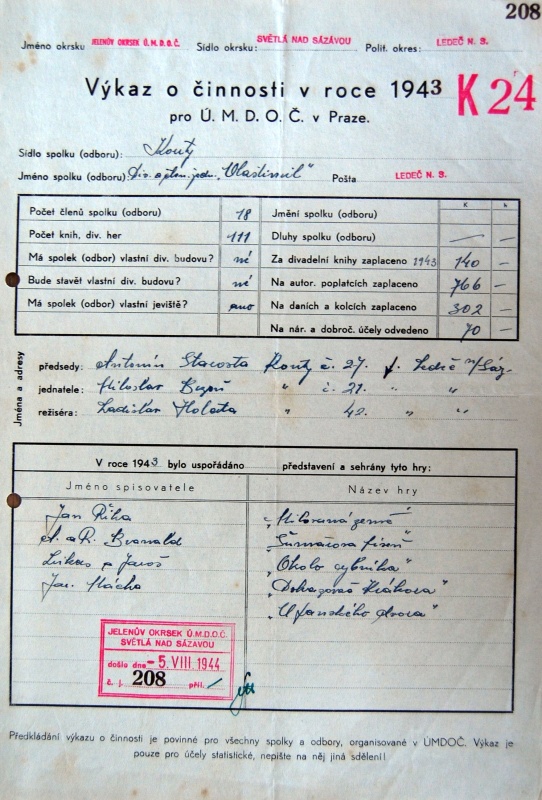 208
Jméno okrsku JELENŮV OKRSEK Ú.M.D.O.Č. Sídlo okrsku: SVĚTLÁ NAD SÁZAVOU Polit. okres: LEDEČ N. S.
Výkaz o činnosti v roce 1943 K24
pro Ú. M. D. O. Č. v Praze.
Sídlo spolku (odboru): Kouty
Jméno spolku (odboru): Div. jedn. „Vlastimil" Pošta LEDEČ N. S.
K h
Počet členů spolku (odboru) 18 Jmění spolku (odboru)
Počet knih, div. her 111 Dluhy spolku (odboru) — —
Má spolek (odbor) vlastní div. budovu? né Za divadelní knihy zaplaceno 1943 140 —
Bude stavět vlastní div. budovu? né Na autor. poplatcích zaplaceno 766 —
Má spolek (odbor) vlastní jeviště? ano Na daních a kolcích zaplaceno 302 —
Na nár. a dobroč. účely odvedeno 70 —
Jména a adresy
předsedy: Antonín Starosta Kouty č. 27. p. Ledeč n/Sáz.
jednatele: Miloslav " č. 21. " "
režiséra: Ladislav Holata " 42. " "
V roce 1943 bylo uspořádáno představení a sehrány tyto hry:
Jméno spisovatele Název hry
Jan Říha
A. a R. Branald „Šumařova píseň"
Lukas a Jaroš „Okolo rybníka"
Jar. Mácha
„U panského dvora"
JELENŮV OKRSEK Ú.M.D.O.Č.
SVĚTLÁ NAD SÁZAVOU
došlo dne -5. VIII. 1944
č. j. 208 příl. /
Předkládání výkazu o činnosti je povinné pro všechny spolky a odbory, organisované v ÚMDOČ. Výkaz je
pouze pro účely statistické, nepište na něj jiná sdělení!